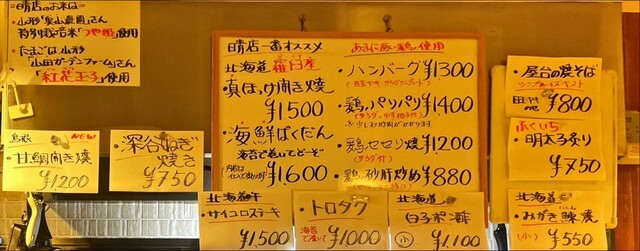 =晴店のお米は=
・山形「奥山農園」さん
特別栽培米「つや姫」使用
・たまごは、山形
「山田ガーデンファーム」さん
「紅花玉子」使用
島根
NEW
甘鯛開き焼
¥1200
深谷ねぎ
焼き
¥750
晴店一番オススメ
北海道 羅臼産
・真ほっけ開き焼
¥1500
・海鮮ばくだん
海苔で巻いてどーぞ
¥1600
あべどり・豚・鶏使用
・ハンバーグ ¥1300
・鶏パリパリ ¥1400
・鶏セセリ焼 ¥1200
・鶏砂肝炒め ¥880
・屋台の焼そば
¥800
ふくいち
・明太子炙り
¥750
北海道牛
・サイコロステーキ
¥1,500
・トロタク
海苔で巻いて
¥1000
北海道
・白子ポン酢
(小) ¥1,100
北海道
・みがき鰊焼
(小) ¥550